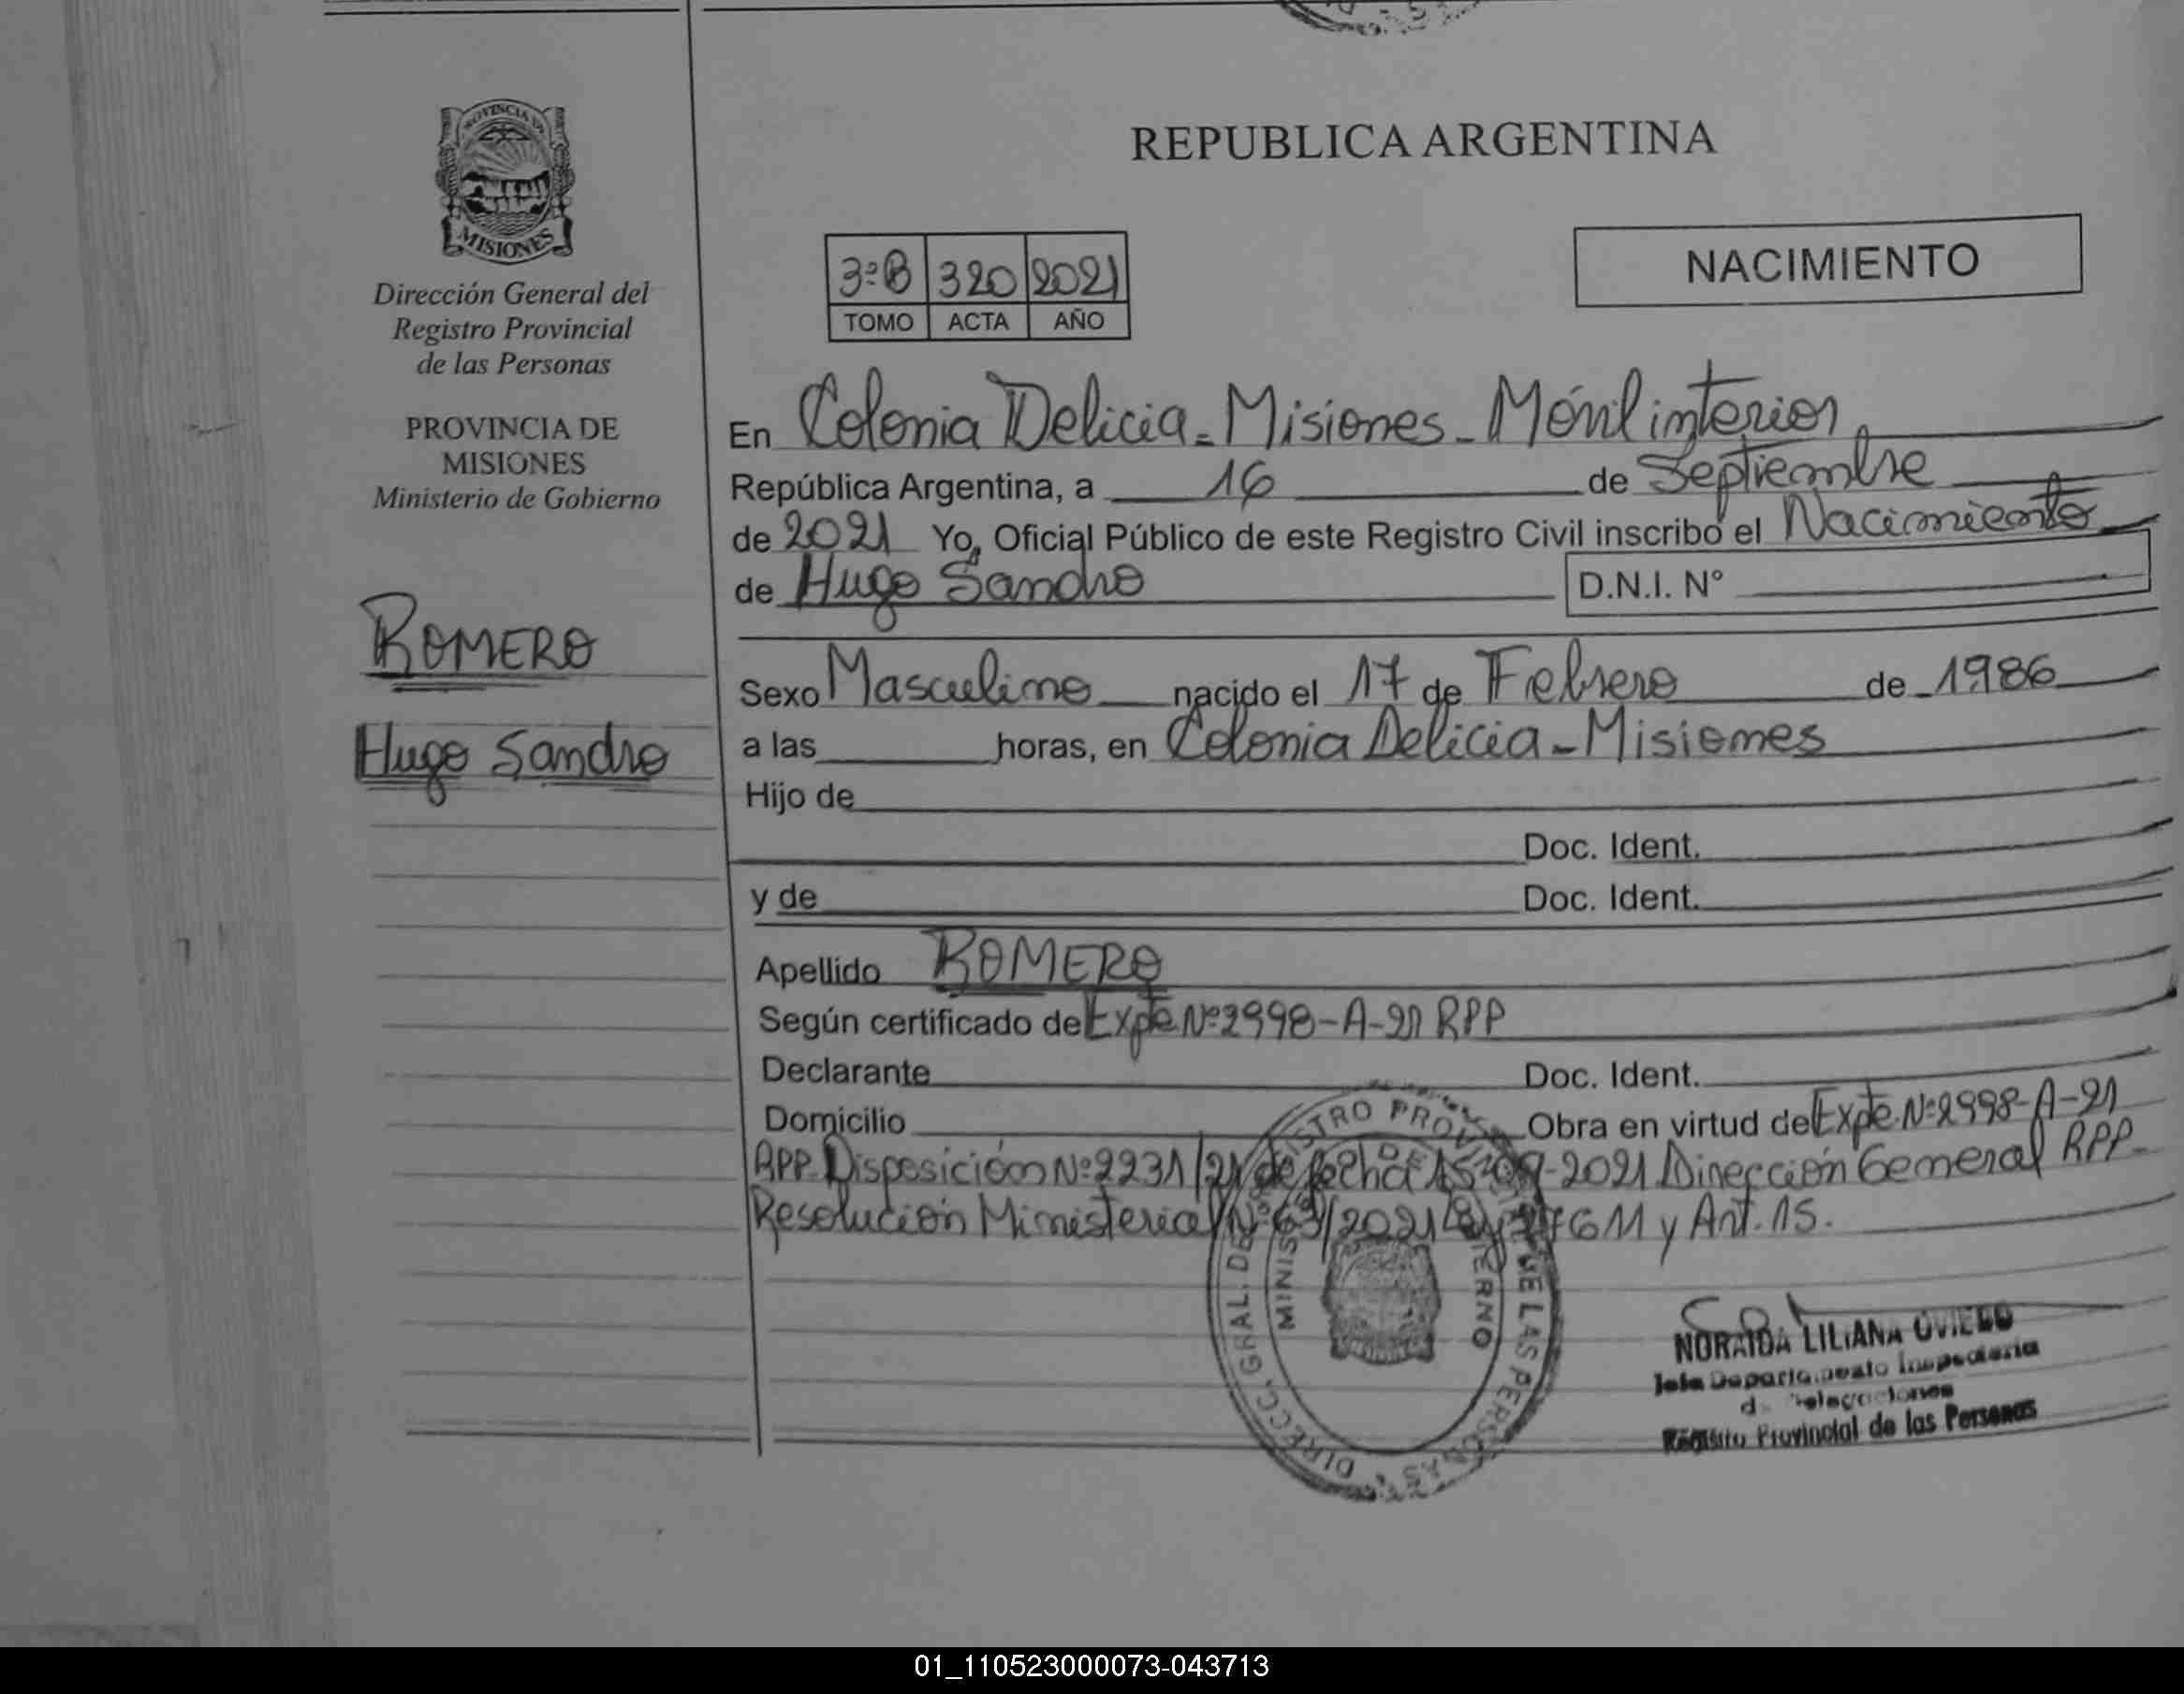 PROVINCIA DE
MISIONES
Dirección General del
Registro Provincial
de las Personas
PROVINCIA DE
MISIONES
Ministerio de Gobierno
ROMERO
Hugo Sandro
REPUBLICA ARGENTINA
3ºB 320 2021
TOMO ACTA AÑO
NACIMIENTO
En Colonia Delicia - Misiones - Móvil interior
República Argentina, a 16 de Septiembre
de 2021 Yo, Oficial Público de este Registro Civil inscribo el Nacimiento
de Hugo Sandro D.N.I. Nº
Sexo Masculino nacido el 17 de Febrero de 1986
a las horas, en Colonia Delicia - Misiones
Hijo de
Doc. Ident.
y de Doc. Ident.
Apellido ROMERO
Según certificado de Expte Nº 2998-A-21 RPP
Declarante Doc. Ident.
Domicilio Obra en virtud de Expte. Nº 2998-A-21
RPP Disposición Nº 2231/21 de fecha 15-09-2021 Dirección General RPP-
Resolución Ministerial Nº 63/2021 Ley 27611 y Art. 15.
DIRECC. GRAL. DEL REGISTRO PROVINCIAL DE LAS PERSONAS
MINISTERIO DE GOBIERNO
NORAIDA LILIANA OVIEDO
Jefa Departamento Inspectoria
de Delegaciones
Registro Provincial de las Personas
01_110523000073-043713